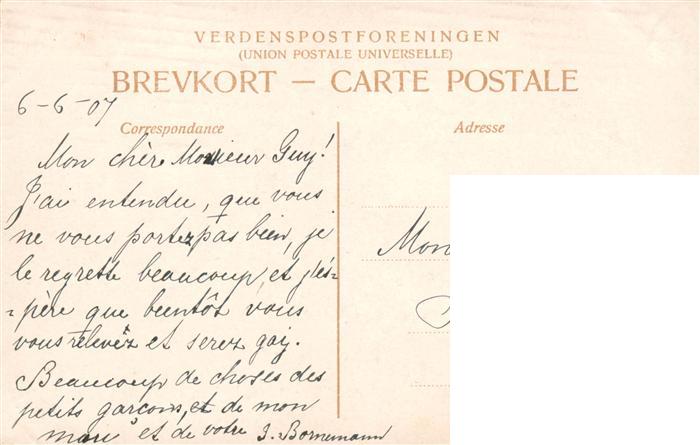 VERDENSPOSTFORENINGEN
(UNION POSTALE UNIVERSELLE)
BREVKORT — CARTE POSTALE
6-6-07
Correspondance
Adresse
Mon chèr Monsieur Guy!
J'ai entendu, que vous
ne vous portez pas bien, je
le regrette beaucoup, et j'és-
-père que bientôt vous
vous relevèz et serez gay.
Beaucoup de choses des
petits garcons, et de mon
mari et de votre J. Bornemann
Mon